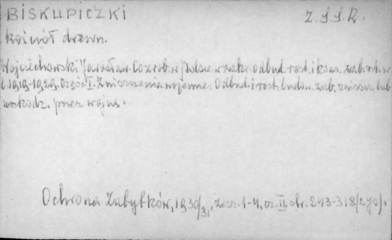 BISKUPICZKI
Z.S.S.R.
kościół drewn.
Wojciechowski Jarosław. Co zrob. w Polsce w zakr. odbud. rest. i kons. zab. szt. w
l. 1919-1929. Część II. Zniszczenia wojenne. Odbud. i rest. budow. zab. zniszcz. lub
uszkodz. przez wojnę.
Ochrona Zabytków, 1930/31, zesz. 1-4, cz. II, str. 243-318